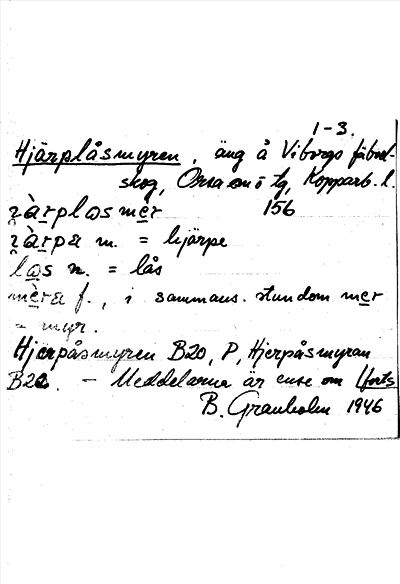 1-3.
Hjärplåsmyren, äng å Viborgs fäbod-
skog, Orsa sn o tg, Kopparb. l.
156
ʒàrplɷsmèr
ʒàrpa m. = hjärpe
lɷs n. = lås
mèra f., i sammans. stundom mer
= myr.
Hjerpåsmyren B20, P, Hjerpåsmyran
B22. – Meddelarna är ense om (forts
B. Granholm 1946